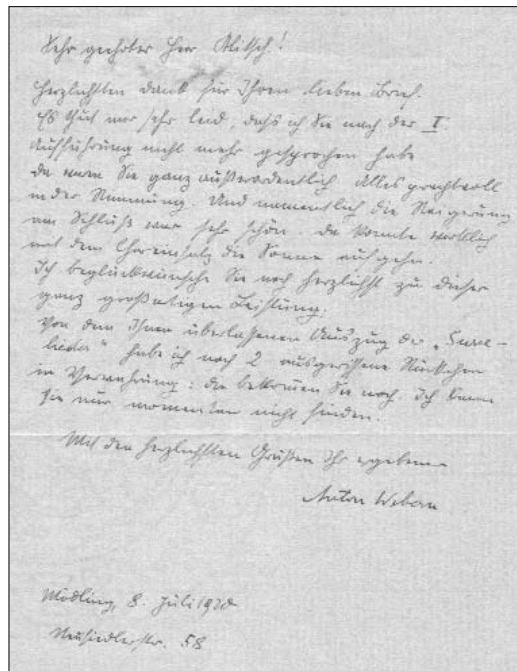 Sehr geehrter Herr
Herzlichsten Dank für Ihren lieben Brief.
Es thut mir sehr leid, dass ich Sie nach der I
Aufführung nicht mehr gesprochen habe
da waren Sie ganz außerordentlich. Alles prachtvoll
in der Stimmung. Und namentlich die Steigerung
am Schluß war sehr schön. Da konnte wirklich
mit dem Choreinsatz die Sonne aufgehn.
Ich beglückwünsche Sie noch herzlichst zu dieser
ganz großartigen Leistung.
Von dem Ihnen überlassenen Auszug der „Gurre-
lieder“ habe ich noch 2 ausgerissene
in Verwahrung: die bekommen Sie noch. Ich kann
sie nur momentan nicht finden.
Mit den herzlichsten Grüßen Ihr ergebener
Anton Webern
Mödling, 8. Juli 1920
Neusiedlerstr. 58